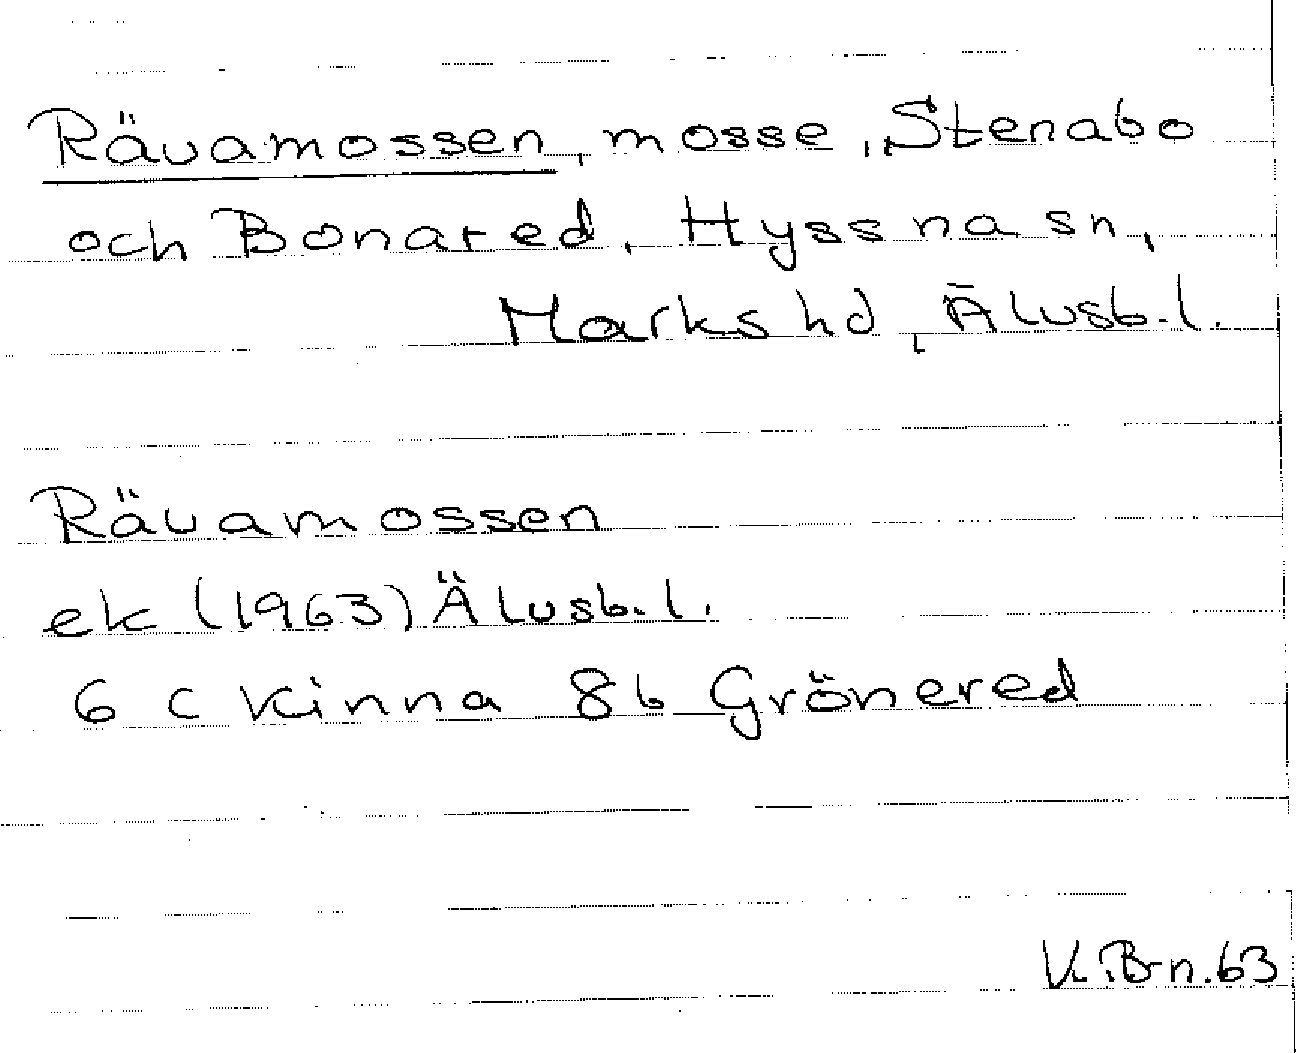 Rävamossen, mosse, Stenabo
och Bonared, Hyssna sn,
Marks hd, Älvsb.l.
Rävamossen
ek (1963) Älvsb.l.
6 c Kinna 8b Grönered
K.B-n.63